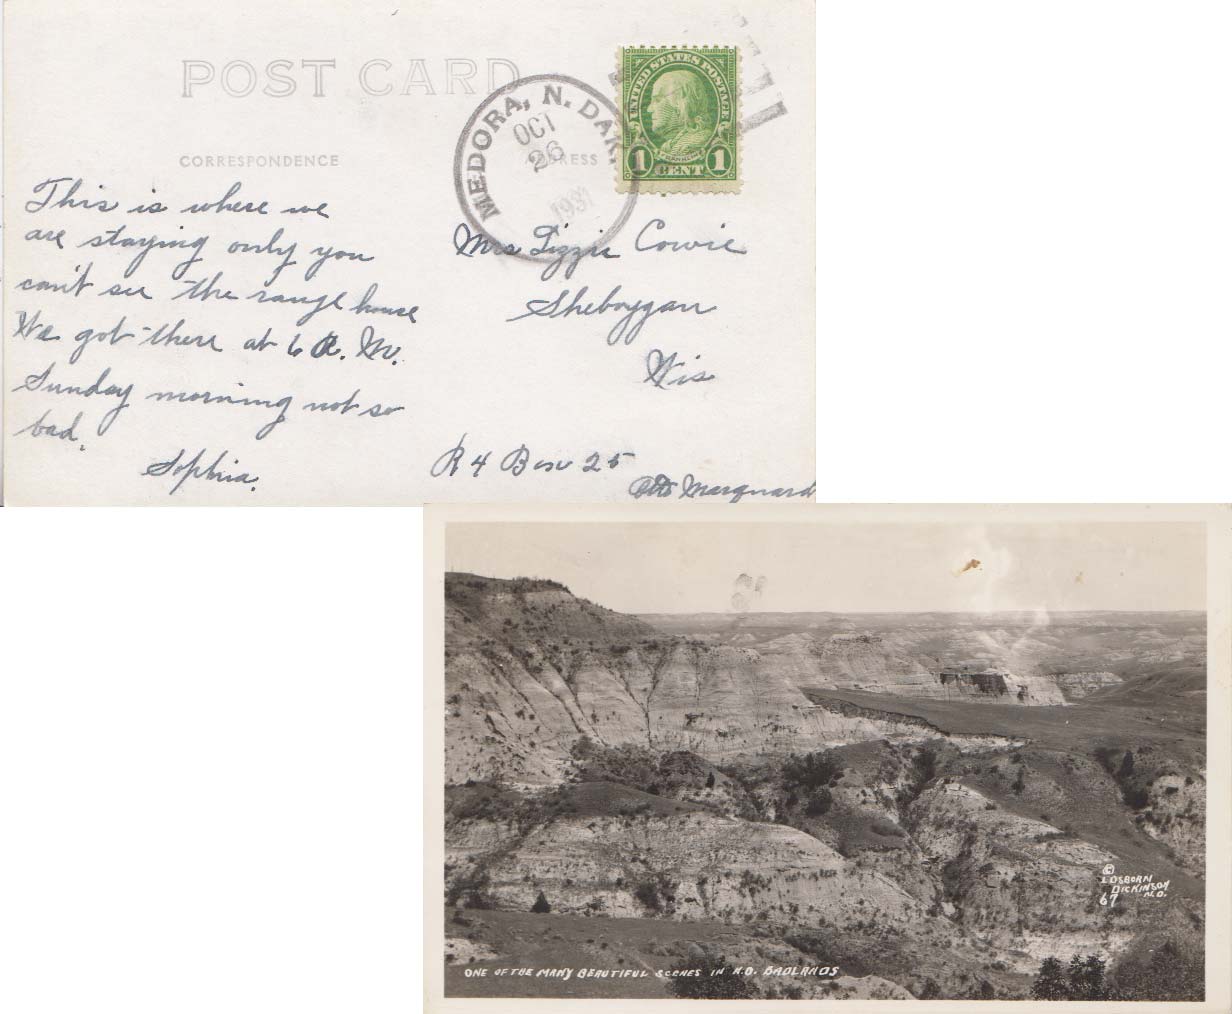 POST CARD
CORRESPONDENCE
ADDRESS
MEDORA, N. DAK.
OCT
26
1931
UNITED STATES POSTAGE
FRANKLIN
1 CENT 1
This is where we
are staying only you
can't see the range house
We got there at 6 A. M.
Sunday morning not so
bad.
Sophia.
Mrs Lizzie Cowie
Sheboygan
Wis
R 4 Box 25
Marquard
©
OSBORN
DICKINSON
N.D.
67
ONE OF THE MANY BEAUTIFUL SCENES IN N.D. BADLANDS